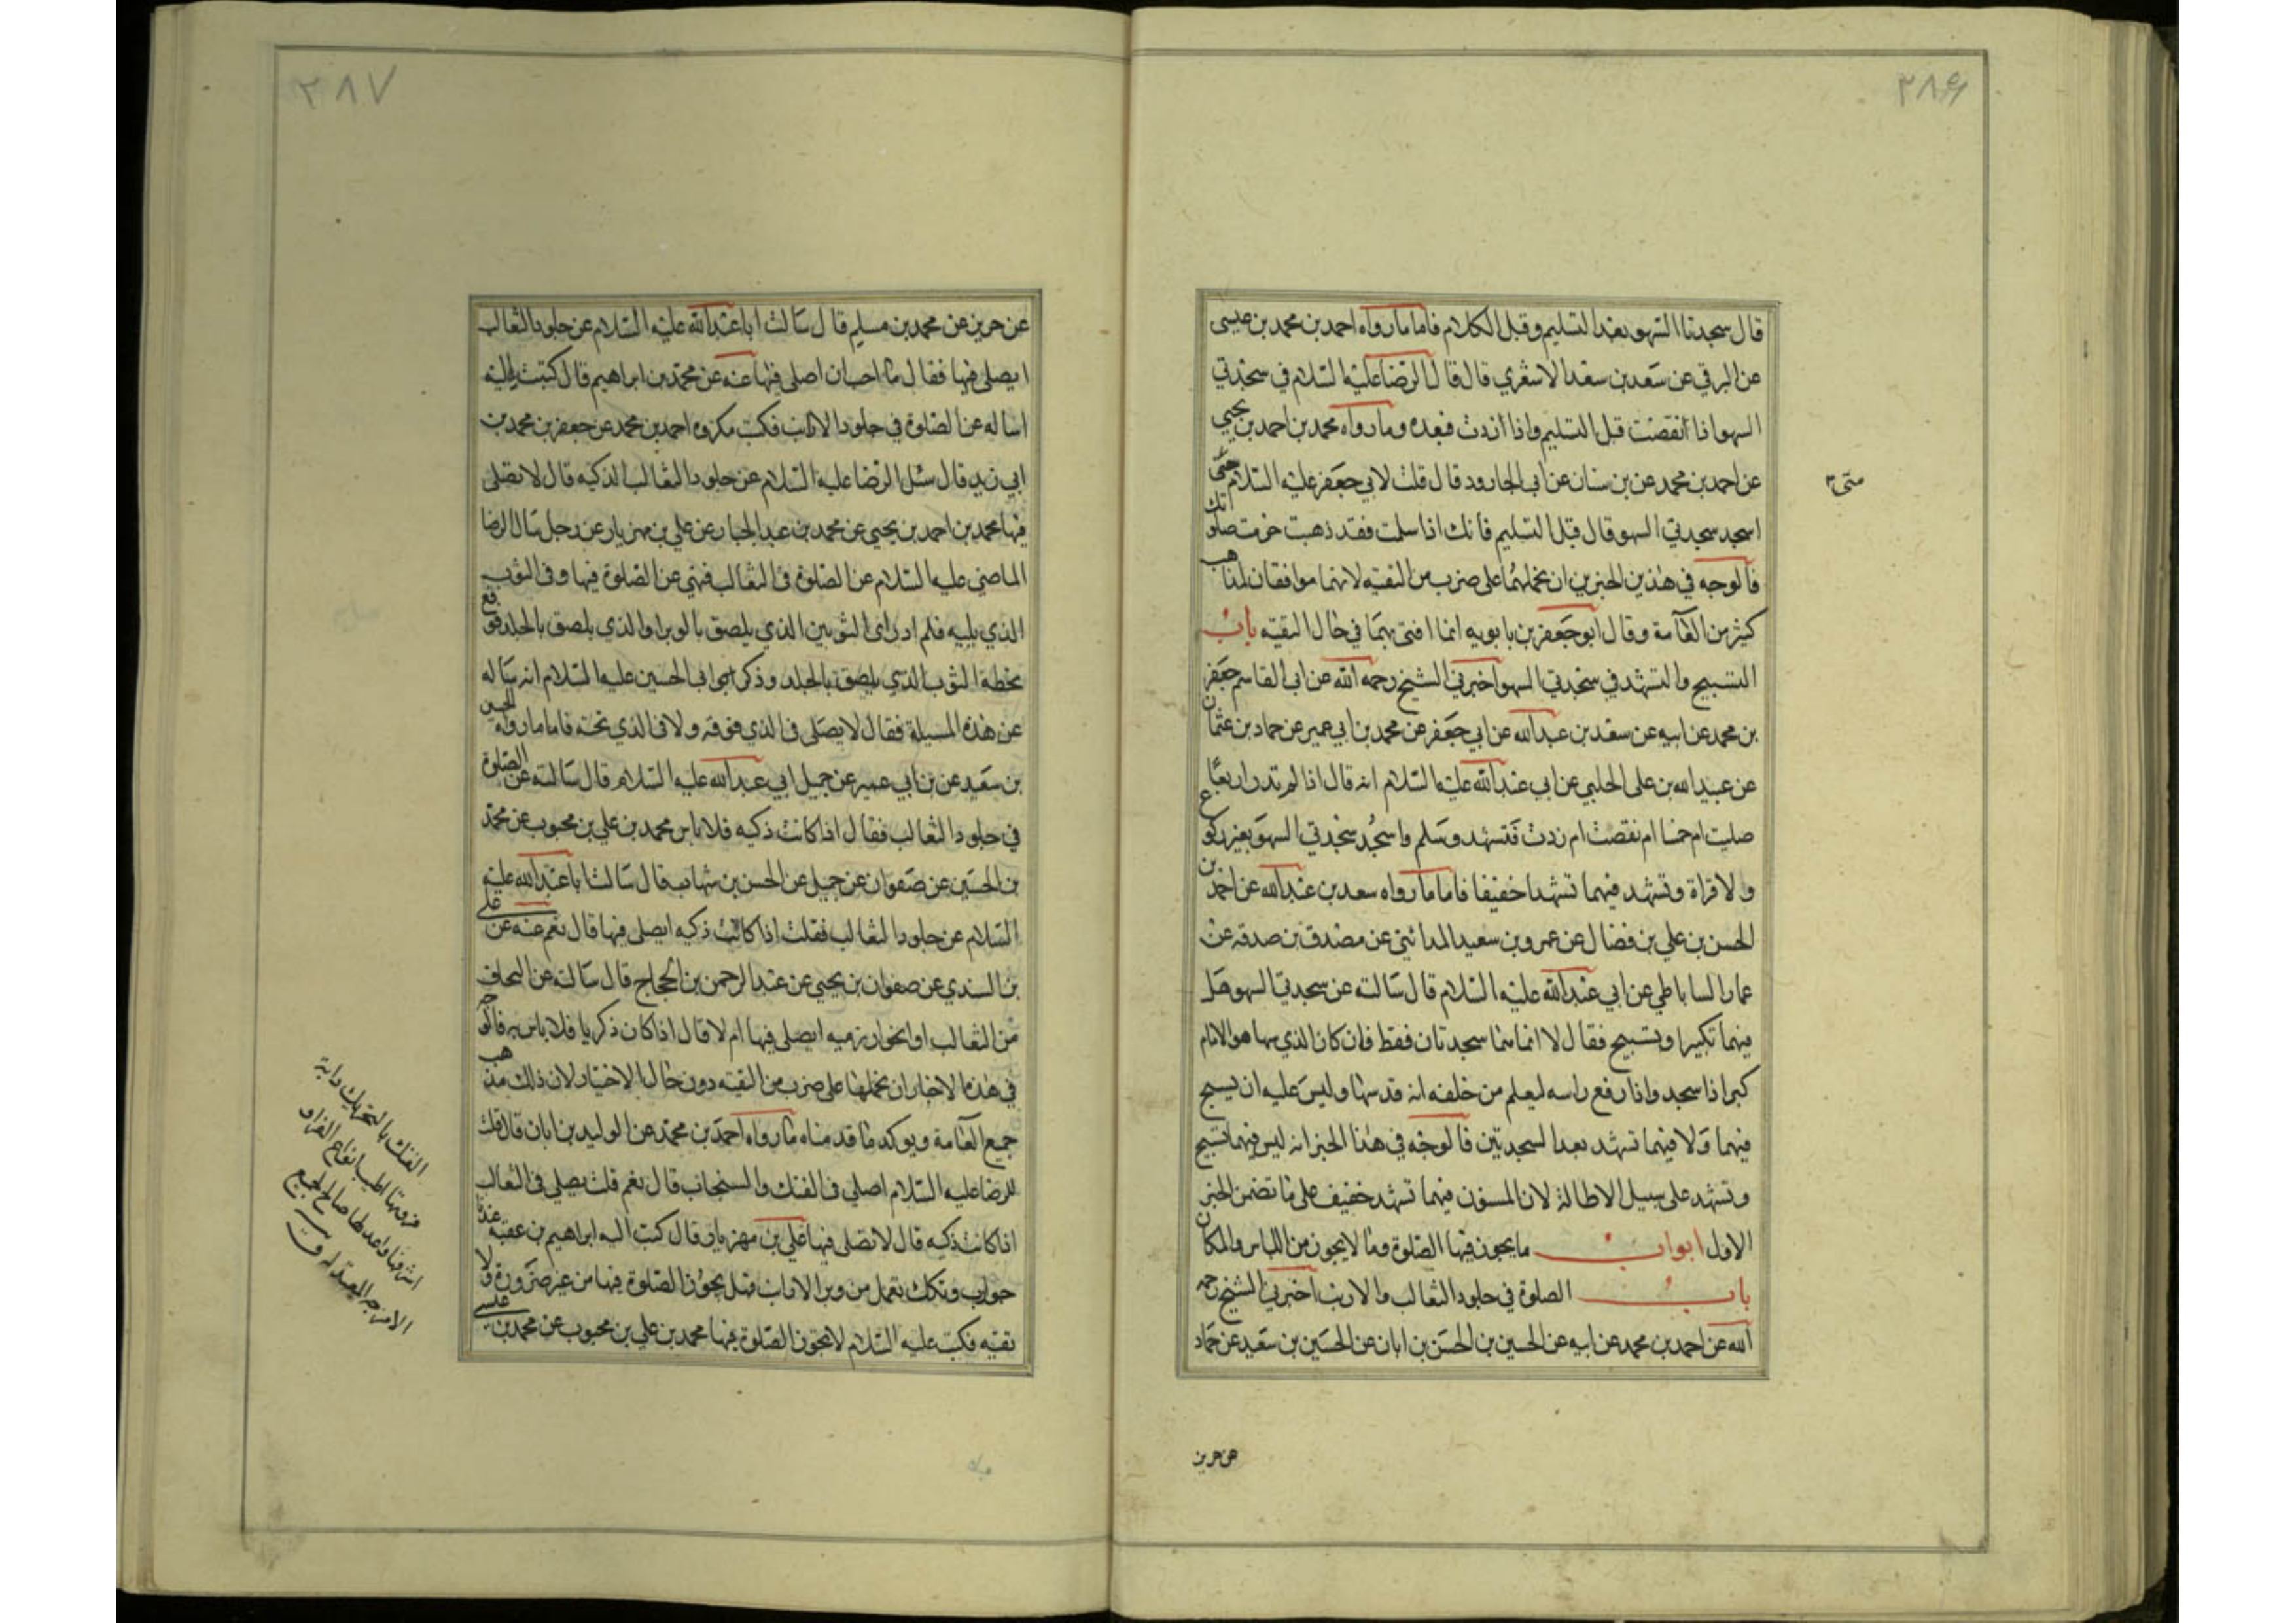 ٣٨۶
قال سجدتا السهو بعد التسليم وقبل الكلام فاما ما رواه احمد بن محمد بن عيسى
عن البرقي عن سعد بن سعد الاشعري قال قال الرضا عليه السلام في سجدتي
السهو اذا نقصت قبل التسليم واذا زدت فبعده وما رواه محمد بن احمد بن يحيي
عن احمد بن محمد عن بن سنان عن ابي الجارود قال قلت لابي جعفر عليه السلام متى
متى
اسجد سجدتي السهو قال قبل التسليم فانك اذا سلمت فقد ذهبت حرمت صلوتك
فالوجه في هذين الخبرين ان نحملهما على ضرب من التقيه لانهما موافقان لمذاهب
كثير من العآمة وقال ابو جعفر بن بابويه انما افتى بهما في حال التقيه باب
التسبيح والتشهد في سجدتي السهو اخبرني الشيخ رحمه الله عن ابي القاسم جعفر
بن محمد عن ابيه عن سعد بن عبد الله عن ابي جعفر عن محمد بن ابي عمير عن حماد بن عثمان
عن عبيد الله بن على الحلبي عن ابي عبد الله عليه السلام انه قال اذا لم تدر اربعًا
صليت ام خمسا ام نقصت ام زدت فتشهد وسلم واسجد سجدتي السهو بغير ركوع
ولا قراة وتشهد فيهما تشهدا خفيفا فاما ما رواه سعد بن عبد الله عن احمد بن
الحسن بن علي بن فضال عن عمرو بن سعيد المدائني عن مصدق بن صدقه عن
عمار الساباطي عن ابي عبد الله عليه السلام قال سالته عن سجدتي السهو هل
فيهما تكبير او تسبيح فقال لا انما هما سجدتان فقط فان كان الذي سها هو الامام
كبر اذا سجد واذا رفع راسه ليعلم من خلفه انه قد سها وليس عليه ان يسبح
فيهما ولا فيهما تشهد بعد السجدتين فالوجه في هذا الخبر انه ليس فيهما تسبيح
وتشهد على سبيل الاطالة لان المسنون فيهما تشهد خفيف على ما تضمن الخبر
الاول ابواب ما يجوز فيها الصلوة وما لا يجوز من اللباس والمكان
باب الصلوة في جلود الثعالب والارنب اخبرني الشيخ رحمه
الله عن احمد بن محمد عن ابيه عن الحسين بن الحسن بن ابان عن الحسين بن سعيد عن حماد
عن حريز
٣٨٧
عن حريز عن محمد بن مسلم قال سالت ابا عبد الله عليه السلام عن جلود الثعالب
ايصلي فيها فقال ما احب ان اصلي فيها عنه عن محمد بن ابراهيم قال كتبت اليه
اساله عن الصلوة في جلود الارانب فكتب مكروه احمد بن محمد عن جعفر بن محمد بن
ابي زيد قال سئل الرضا عليه السلام عن جلود الثعالب الذكيه قال لا تصلى
فيها محمد بن احمد بن يحيى عن محمد بن عبد الجبار عن علي بن مهزيار عن رجل سال الرضا
الماضي عليه السلام عن الصلوة في الثعالب فنهى عن الصلوة فيها وفي الثوب
الذي يليه فلم ادر اى الثوبين الذي يلصق بالوبر او الذي يلصق بالجلد فوقع
بخطه الثوب الذي يلصق بالجلد وذكر ابو الحسين عليه السلام انه ساله
عن هذه المسيلة فقال لا يصلى في الذي فوقه ولا في الذي تحته فاما ما رواه الحسين
بن سعيد عن بن ابي عمير عن جميل ابي عبد الله عليه السلام قال سالته عن الصلوة
في جلود الثعالب فقال اذا كانت ذكيه فلا باس محمد بن علي بن محبوب عن محمد
بن الحسين عن صفوان عن جميل عن الحسن بن شهاب قال سالت ابا عبد الله عليه
السلام عن جلود الثعالب فقلت اذا كانت ذكيه ايصلى فيها قال نعم عنه عن على
بن السندي عن صفوان بن يحيي عن عبد الرحمن بن الحجاج قال سالته عن اللحاف
من الثعالب او الخوارزميه ايصلى فيها ام لا قال اذا كان ذكيا فلا باس به فالوجه
في هذه الاخبار ان نحملها على ضرب من التقيه دون حال الاختيار لان ذلك مذهب
جميع العامة ويوكد ما قدمناه ما رواه احمد بن محمد عن الوليد بن ابان قال قلت
للرضا عليه السلام اصلي في الفنك والسنجاب قال نعم قلت يصلى في الثعالب
اذا كانت ذكيه قال لا تصلى فيها علي بن مهزيار قال كتب اليه ابراهيم بن عقبه عندنا
جوارب وتكك تعمل من وبر الارانب فهل يجوز الصلوة فيها من غير ضرورة ولا
تقيه فكتب عليه السلام لا تجوز الصلوة فيها محمد بن علي بن محبوب عن محمد بن عيسى
الفنك بالتحريك دابة
فروتها اطيب انواع الفراء و
اشرفها واعدلها صالح لجميع
الامزجه المعتدله ق